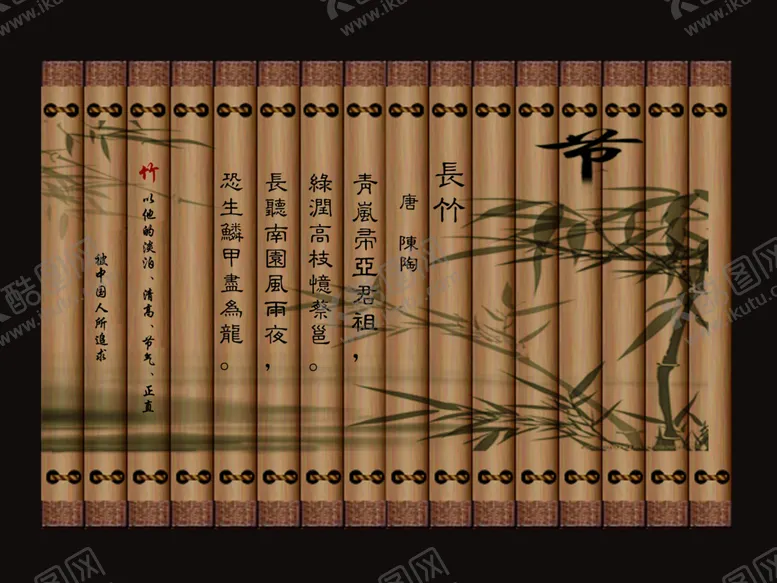 节
長竹
唐 陳陶
青嵐帚亞君祖，
綠潤高枝憶蔡邕。
長聽南園風雨夜，
恐生鱗甲盡為龍。
竹以他的淡泊、清高、节气、正直
被中国人所追求
酷图网
www.ikutu.com